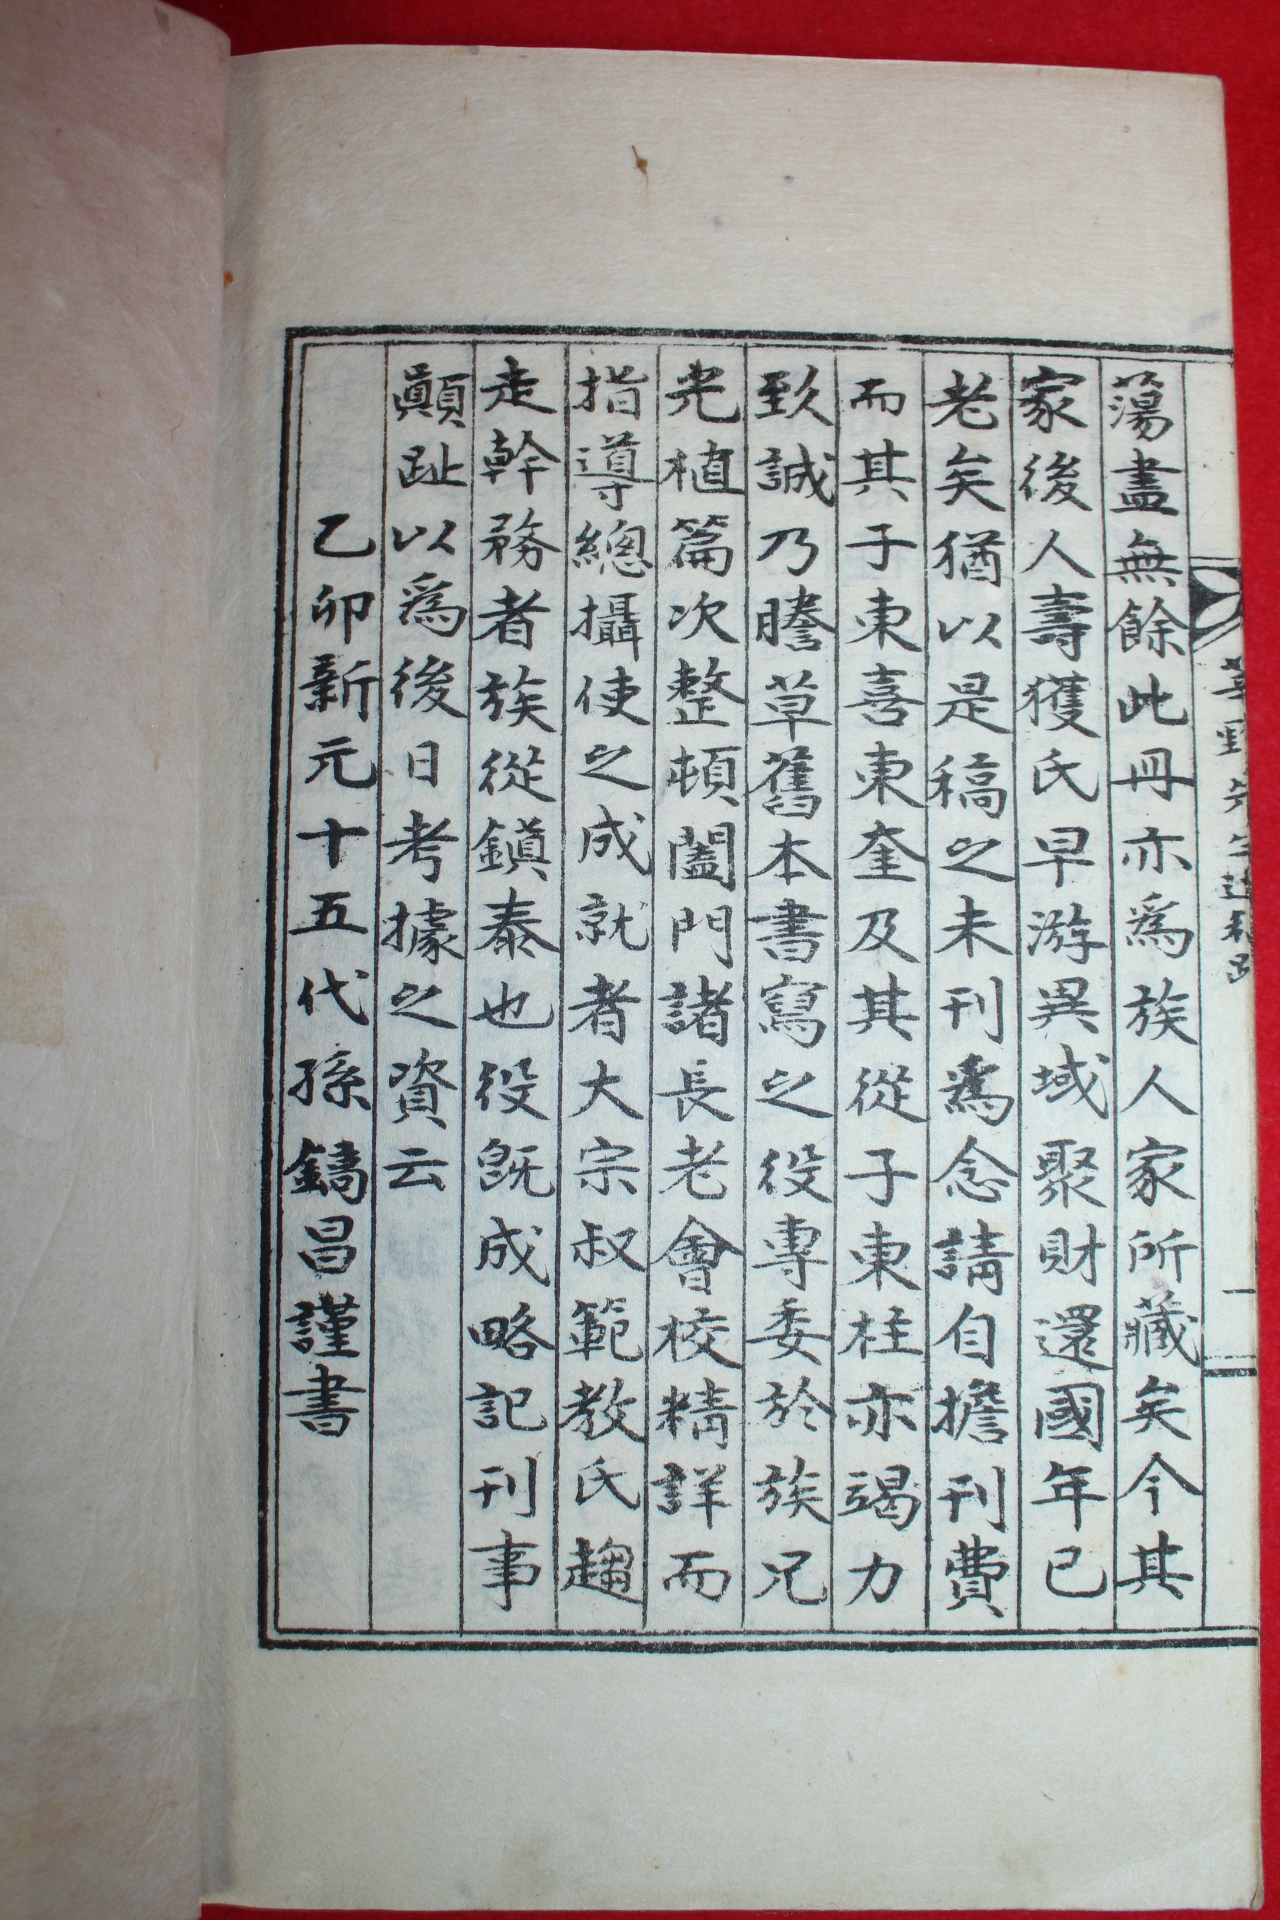 蕩盡無餘此冊亦爲族人家所藏矣今其
家後人壽獲氏早游異域聚財還國年已
老矣猶以是稿之未刊爲念請自擔刊費
而其子東喜東奎及其從子東柱亦竭力
致誠乃謄草舊本書寫之役專委於族兄
光植篇次整頓闔門諸長老會校精詳而
指導總攝使之成就者大宗叔範教氏趨
走幹務者族從鎭泰也役旣成略記刊事
顚趾以爲後日考據之資云
乙卯新元十五代孫鎬昌謹書
先生遺稿跋
一